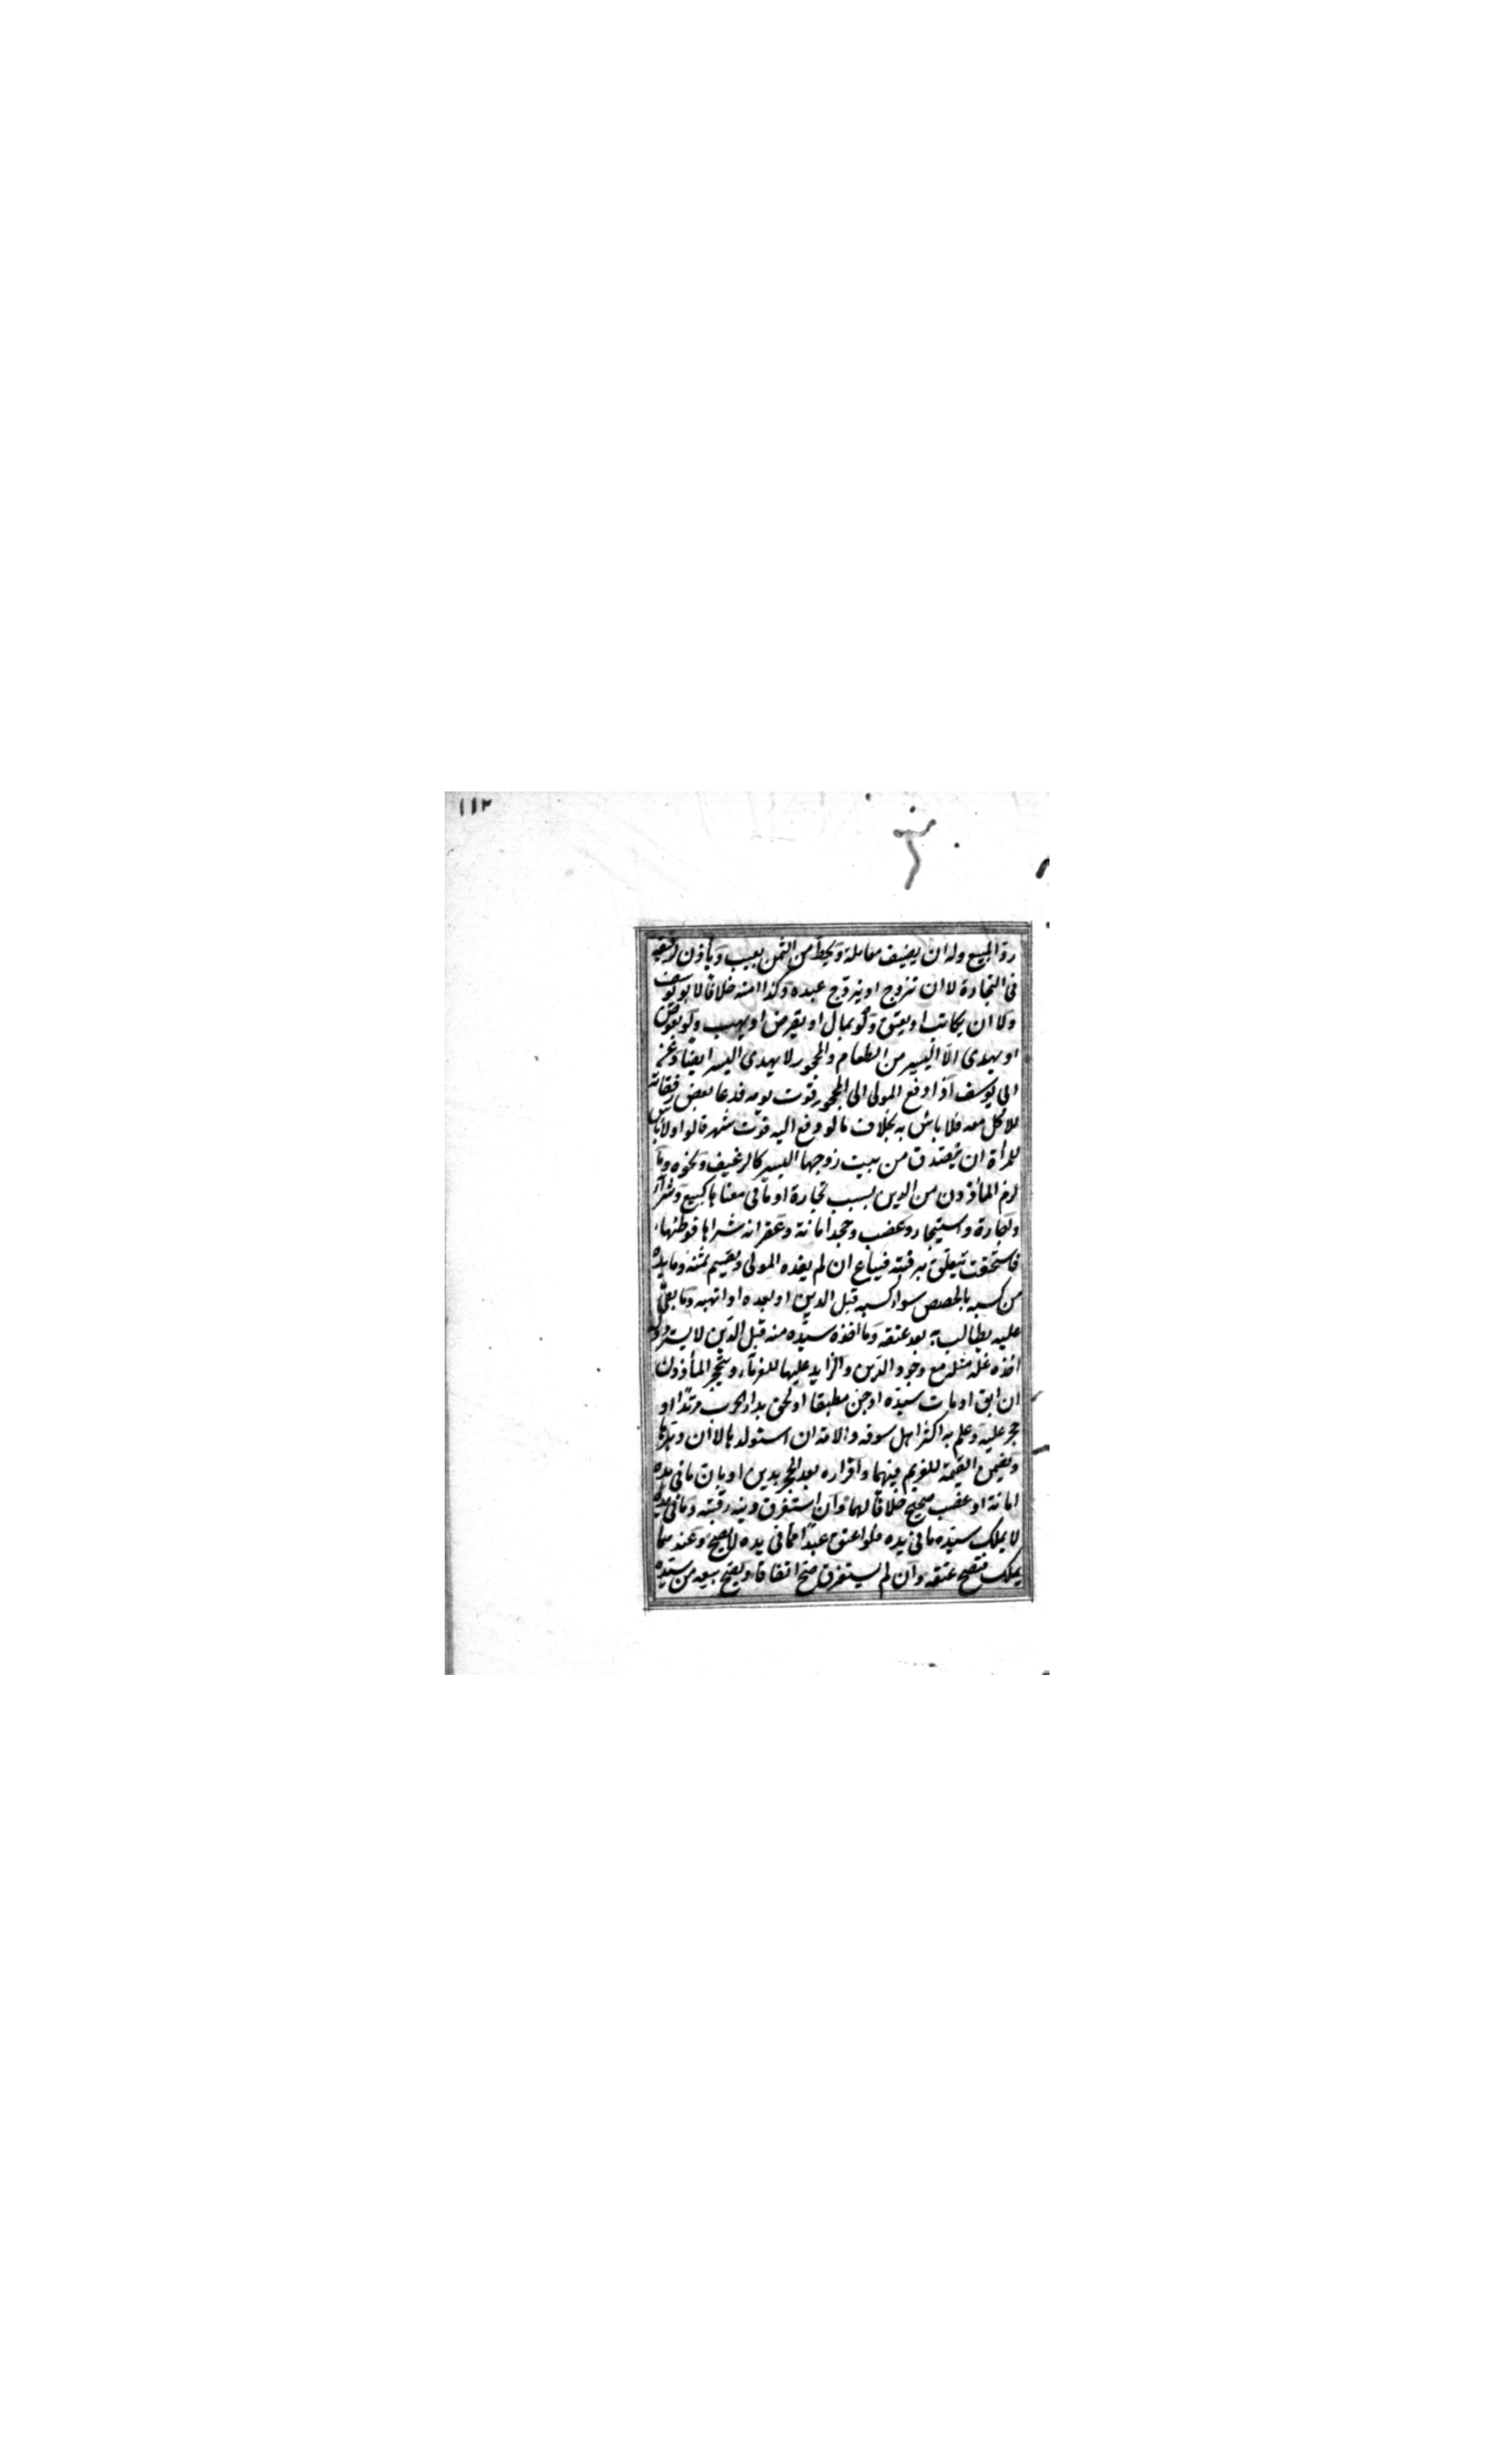 ١١٢
رد المبيع وله ان يضيف معامله ويحط من الثمن بعيب وياذن لرقيقه
فى التجارة لا ان تزوج او يزوج عبده وكذا امته خلافا لابو يوسف
ولا ان يكاتب او يعتق ولو بمال او يقرض او يهب ولو بعوض
او يهدى الا اليسير من الطعام والمحجور لا يهدى اليسير ايضا وعن
ابى يوسف اذا دفع المولى الى المحجور قوت يومه فدعا بعض رفقائه
للاكل معه فلا باس به بخلاف ما لو دفع اليه قوت شهر قالوا ولا باس
للمرأة ان تتصدق من بيت زوجها اليسير كالرغيف ونحوه وما
لزم المأذون من الدين بسبب تجارة او ما فى معناها كبيع وشراء
واجارة واستيجار وغصب وجحد امانة وعقر امة شراها فوطئها
فاستحقت تيعلق برقبته فيباع ان لم يفده المولى ويقسم ثمنه وما بيده
من كسبه بالحصص سواء كسبه قبل الدين او بعده او اتهبه وما بقى
عليه يطالب به بعد عتقه وما اخذه سيده منه قبل الدين لا يسترد وله
اخذه غلة مثله مع وجود الدين والزايد عليها للغرماء وينحجر المأذون
ان ابق او مات سيده او جن مطبقا او لحق بدار الحرب مرتدا او
حجر عليه وعلم به اكثر اهل سوقه والامة ان استولدها لا ان دبرها
ويضمن القيمة للغريم فيهما واقراره بعد الحجر بدين او بان ما فى يده
امانة او غصب صحيح خلافا لهما وان استغرق دينه رقبته وما فى يده
لا يملك سيده ما فى يده فلو اعتق عبدا مما فى يده لا يصح وعندهما
يملك فتصح عتقه وان لم يستغرق صح اتفاقا ويصح بيعه من سيده